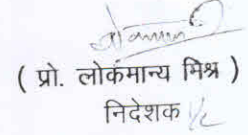 ( प्रो. लोकमान्य मिश्र )
निदेशक